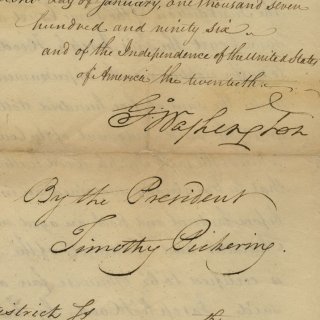 day of January, one thousand seven
hundred and ninety six
and of the Independence of the United States
of America the twentieth.
G. Washington
By the President
Timothy Pickering.
District